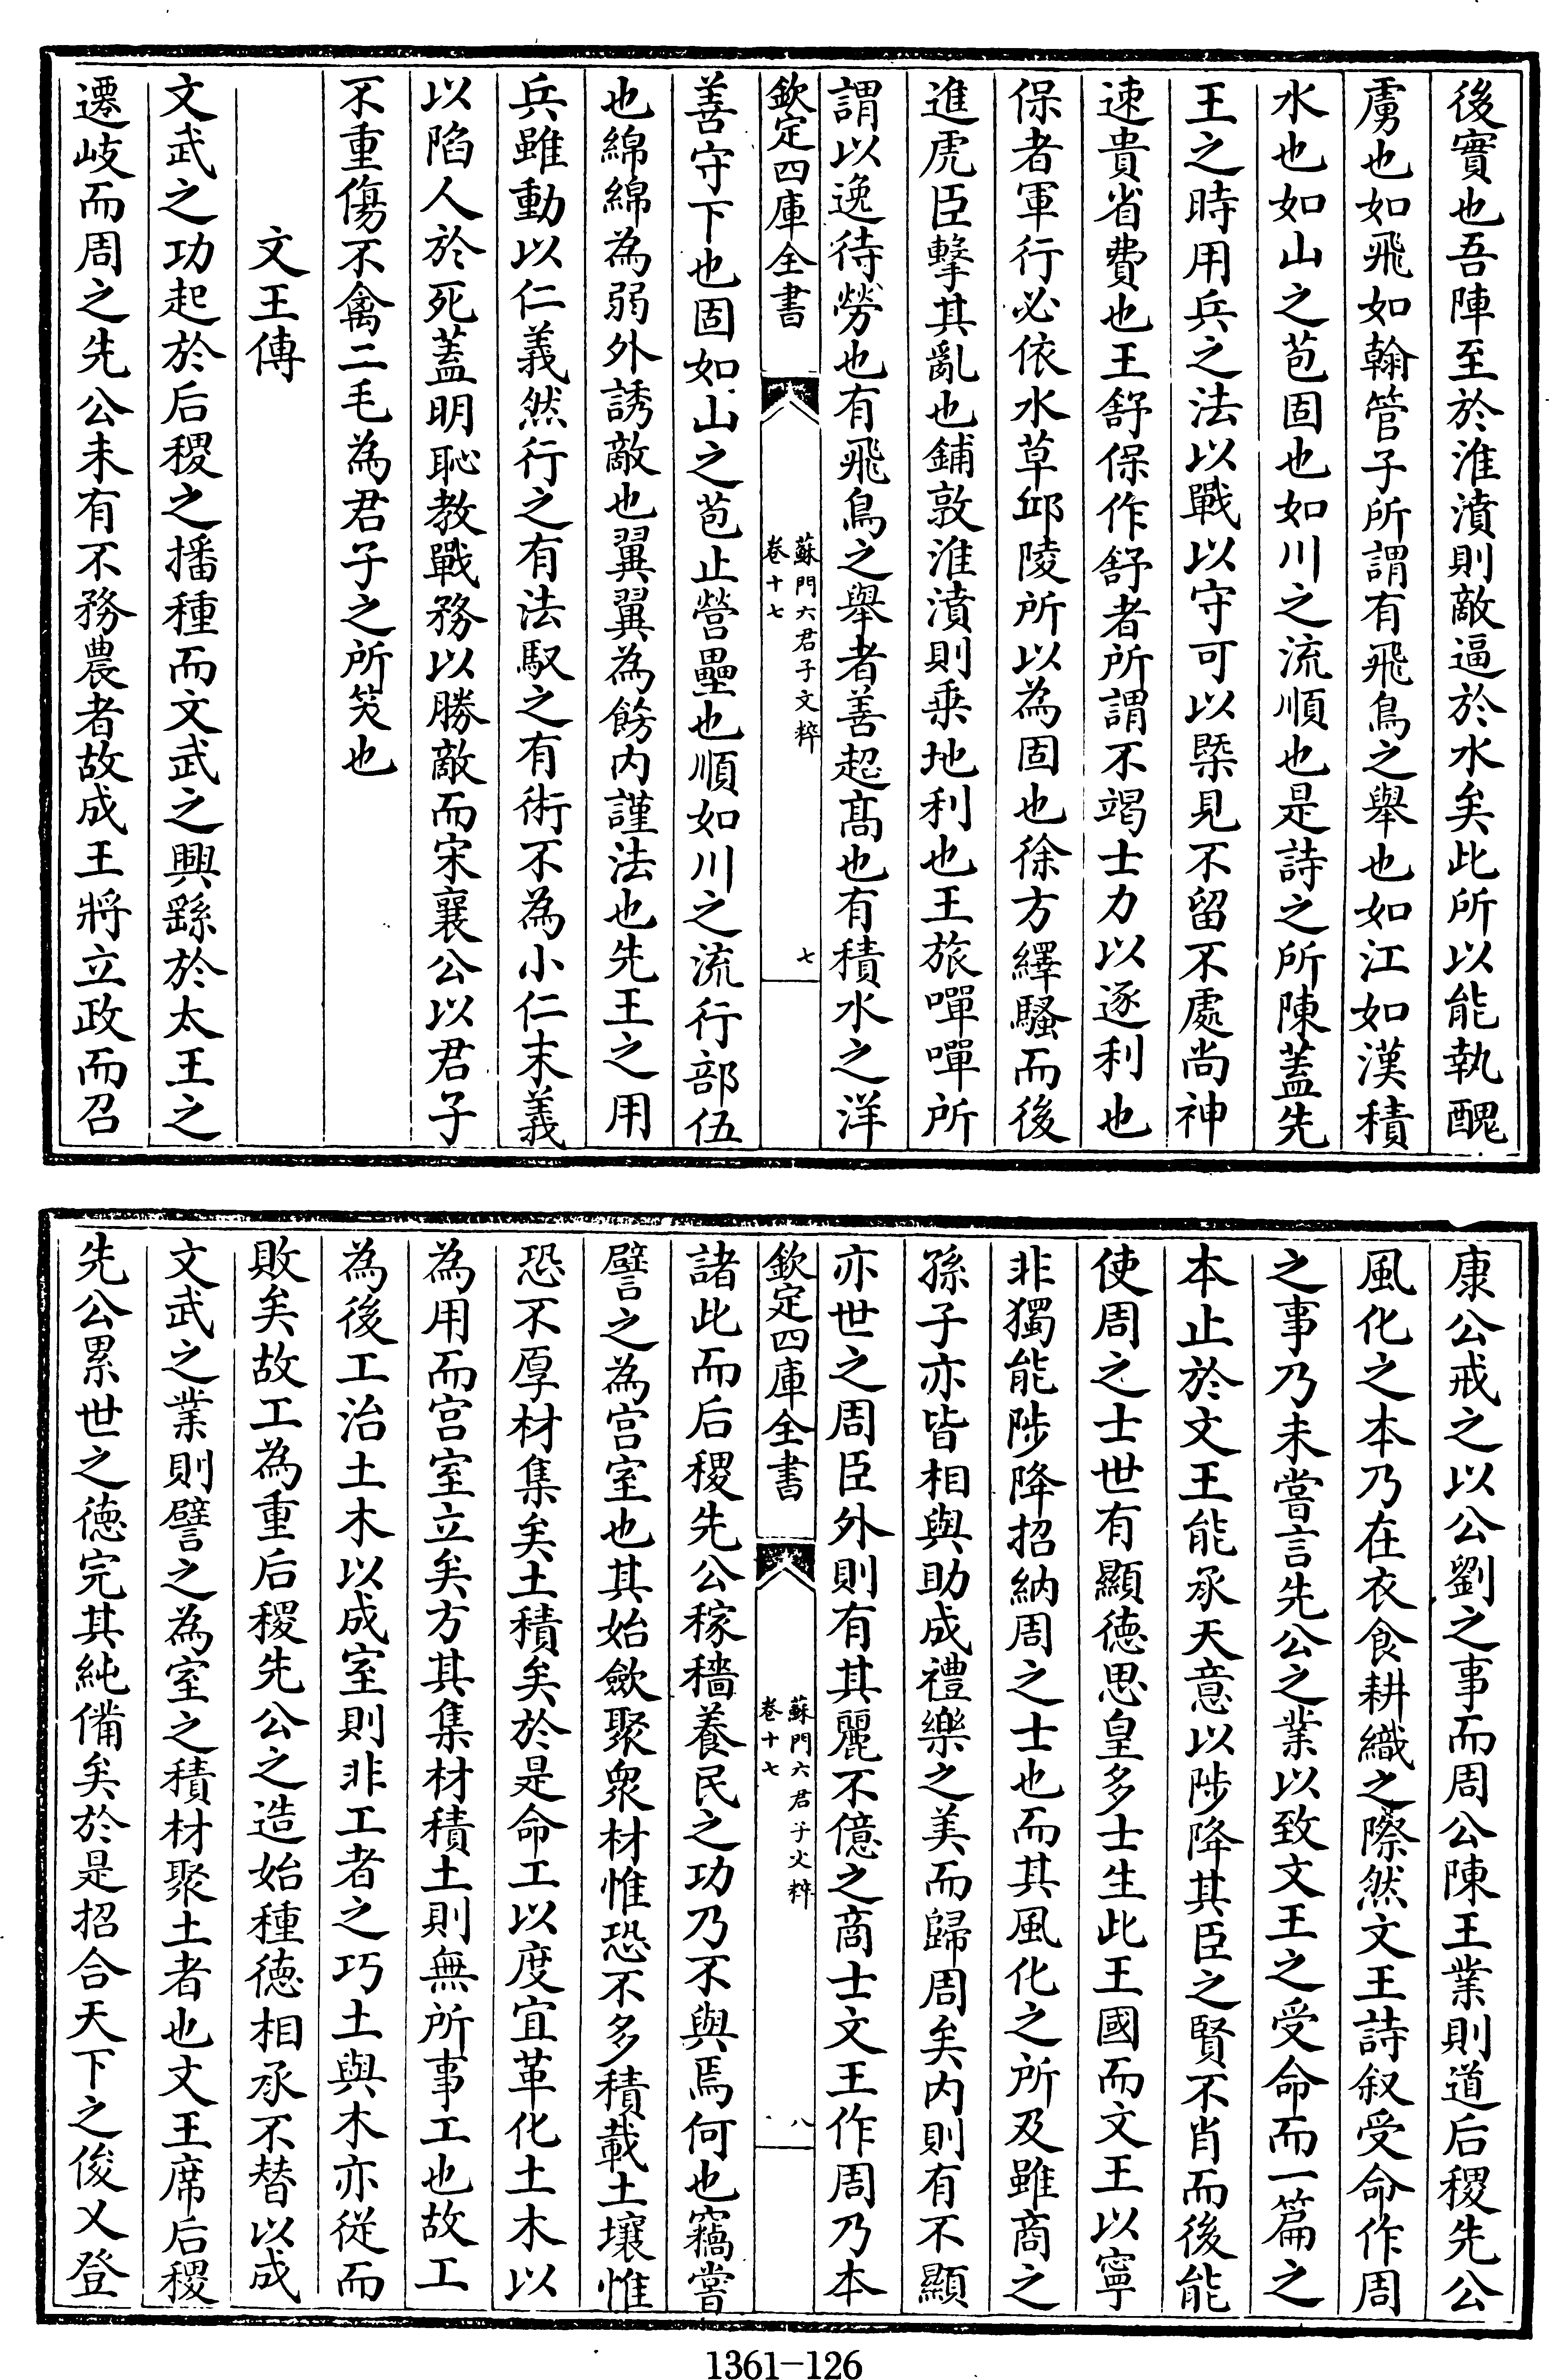 後實也吾陣至於淮濆則敵逼於水矣此所以能執醜
虜也如飛如翰管子所謂有飛鳥之舉也如江如漢積
水也如山之苞固也如川之流順也是詩之所陳蓋先
王之時用兵之法以戰以守可以槩見不留不處尚神
速貴省費也王舒保作舒者所謂不竭士力以逐利也
保者軍行必依水草邱陵所以為固也徐方繹騷而後
進虎臣擊其亂也鋪敦淮濆則乗地利也王旅嘽嘽所
謂以逸待勞也有飛鳥之舉者善超髙也有積水之洋
欽定四庫全書
蘇門六君子文粹
卷十七
七
善守下也固如山之苞止營壘也順如川之流行部伍
也綿綿為弱外誘敵也翼翼為餝内謹法也先王之用
兵雖動以仁義然行之有法馭之有術不為小仁末義
以陷人於死蓋明恥教戰務以勝敵而宋襄公以君子
不重傷不禽二毛為君子之所笑也
文王傳
文武之功起於后稷之播種而文武之興繇於太王之
遷岐而周之先公未有不務農者故成王將立政而召
康公戒之以公劉之事而周公陳王業則道后稷先公
風化之本乃在衣食耕織之際然文王詩叙受命作周
之事乃未嘗言先公之業以致文王之受命而一篇之
本止於文王能承天意以陟降其臣之賢不肖而後能
使周之士世有顯徳思皇多士生此王國而文王以寧
非獨能陟降招納周之士也而其風化之所及雖商之
孫子亦皆相與助成禮樂之美而歸周矣内則有不顯
亦世之周臣外則有其麗不億之商士文王作周乃本
欽定四庫全書
蘇門六君子文粹
卷十七
八
諸此而后稷先公稼穡養民之功乃不與焉何也竊嘗
譬之為宫室也其始歛聚衆材惟恐不多積載土壤惟
恐不厚材集矣土積矣於是命工以度宜革化土木以
為用而宫室立矣方其集材積土則無所事工也故工
為後工治土木以成室則非工者之巧土與木亦從而
敗矣故工為重后稷先公之造始種徳相承不替以成
文武之業則譬之為室之積材聚土者也文王席后稷
先公累世之徳完其純備矣於是招合天下之俊乂登
1361-126